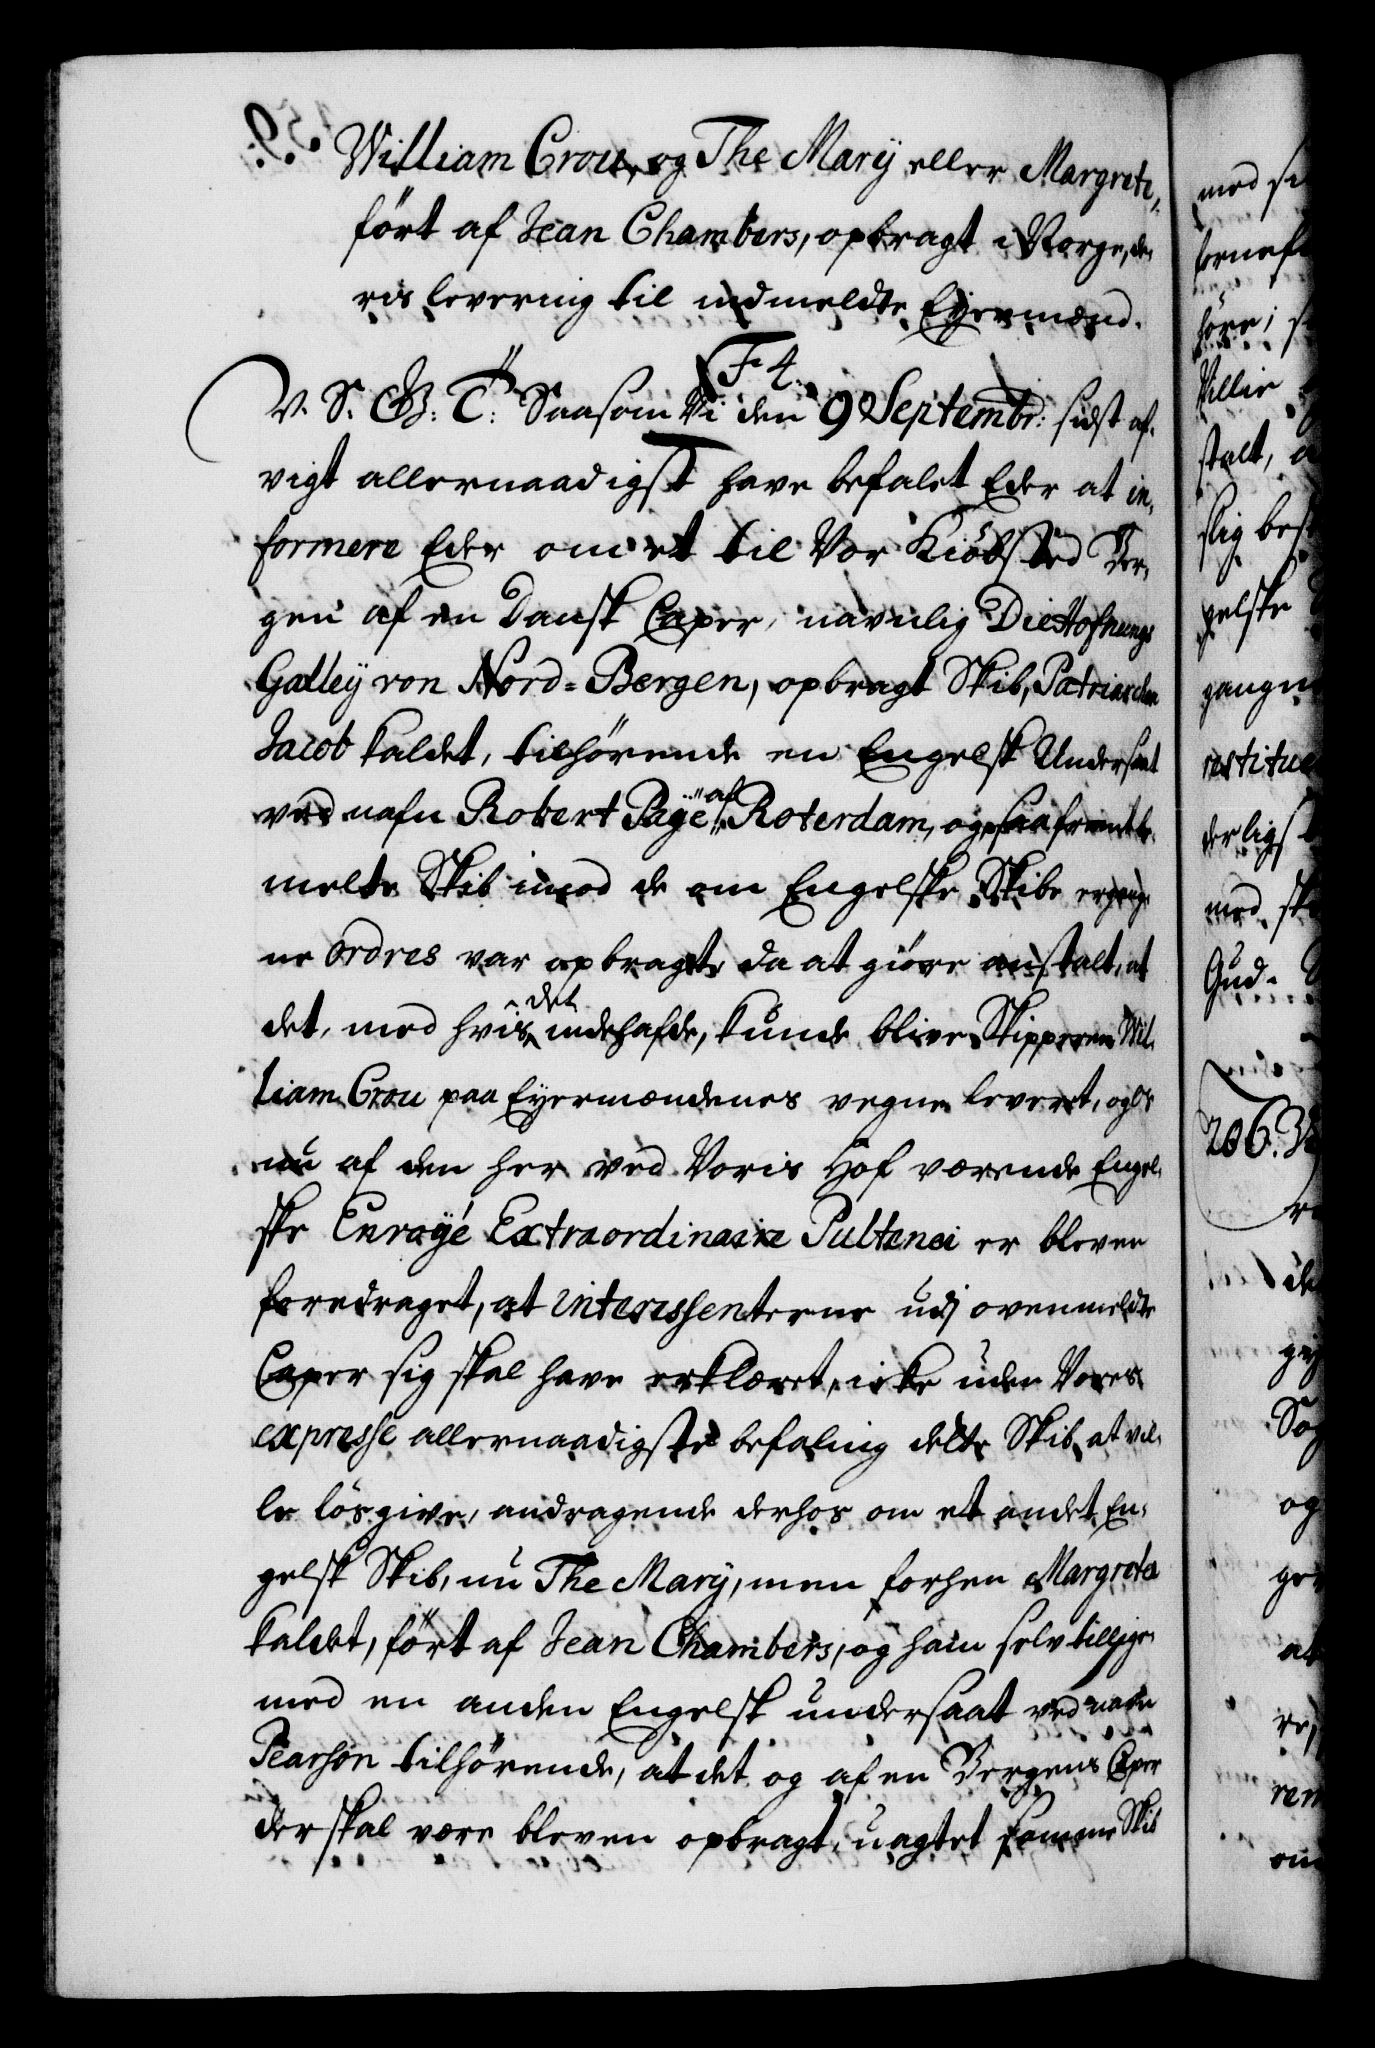 William Crou, og The Mary eller Margrete,
ført af Jean Chambers, opbragt i Norge, de,
ris levering til indmeldte Eyermænd.
F 4.
V. S. G: T: Saasom Vi den 9 Septembr: sidst af,
vigt allernaadigst have befalet Eder at in,
formere Eder om et til Vor Kiøbsted Ber,
gen af en Dansk Caper, navnlig Die Hofnungs
Galley von Nord=Bergen, opbragt Skib, Patriarchen
Jacob kaldet, tilhørende en Engelsk Undersaat
ved nafn Robert Page af Roterdam, og saafremt be,
melte Skib imod de om Engelske Skibe ergange,
ne ordres var opbragt, da at giøre anstalt, at
det, med hvis det indehafde, kunde blive Skipperen Wil,
liam Crou paa Eyermændenes vegne leveret, og Os
nu af den her ved Voris Hof værende Engel,
ske Envoyé Extraordinaire Pultenei er bleven
foredraget, at Interessenterne udj ovenmeldte
Caper sig skal have erklæret, icke uden Vores
expresse allernaadigste befaling delte Skib at vil,
le løsgive, andragende derhos om et andet En,
gelsk Skib, nu The Mary, men forhen Margreta
kaldet, ført af Jean Chambers, og ham selv tillige
med en anden Engelsk undersaat ved nafn
Pearson tilhørende, at det og af en Bergens Caper
der skal være bleven opbragt, uagtet samme Skib
206.